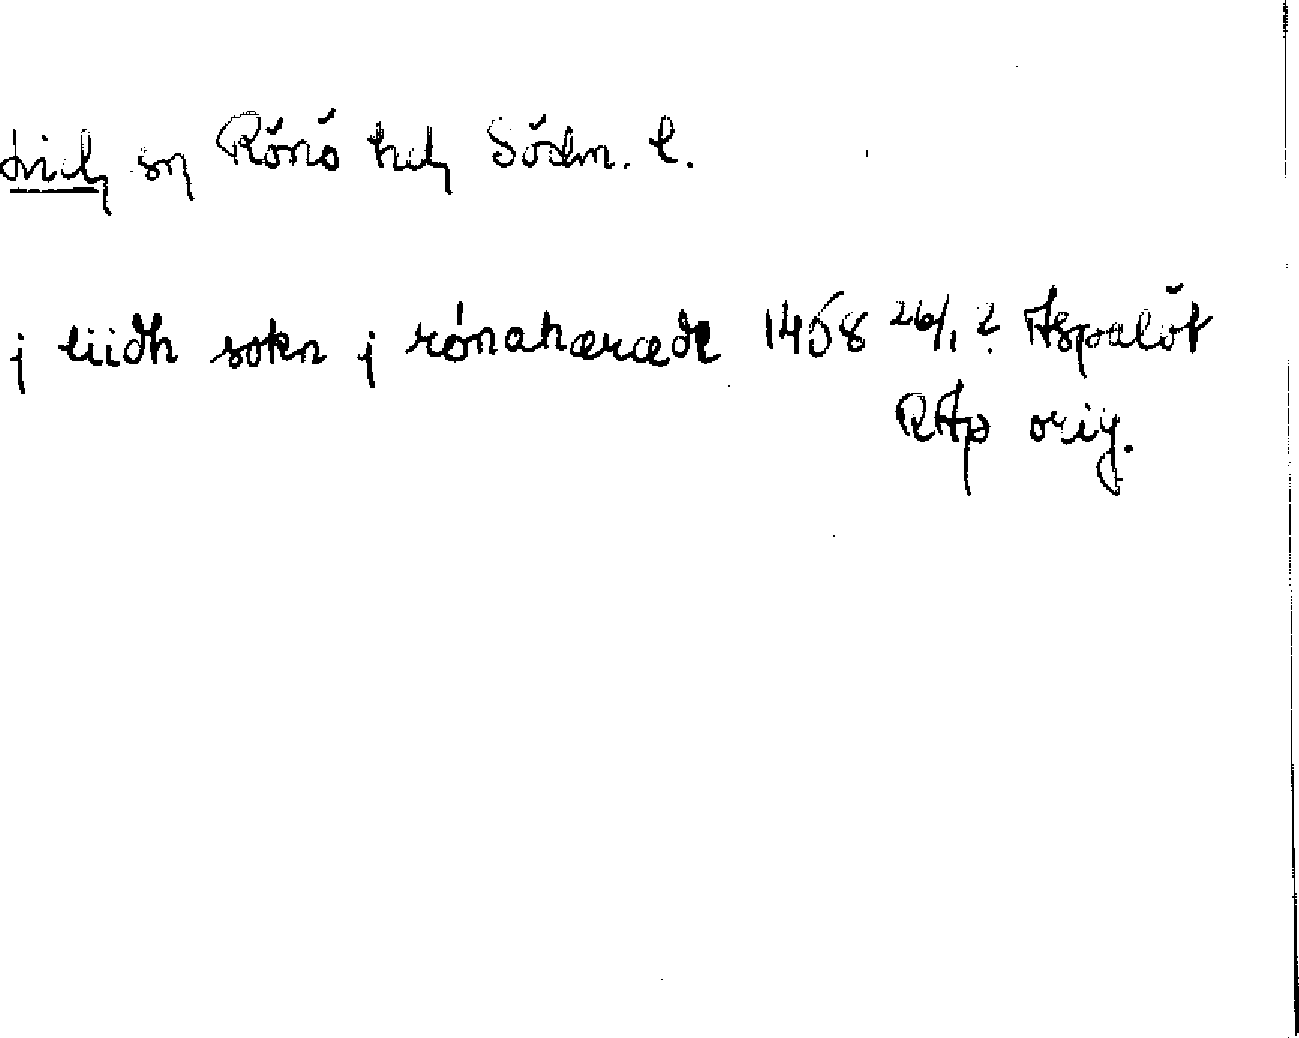 Lid sn Rönö hd Södm. l.
j liidh sokn j rónahæræde 1458 26/1 ? Aspalöt
RAp orig.